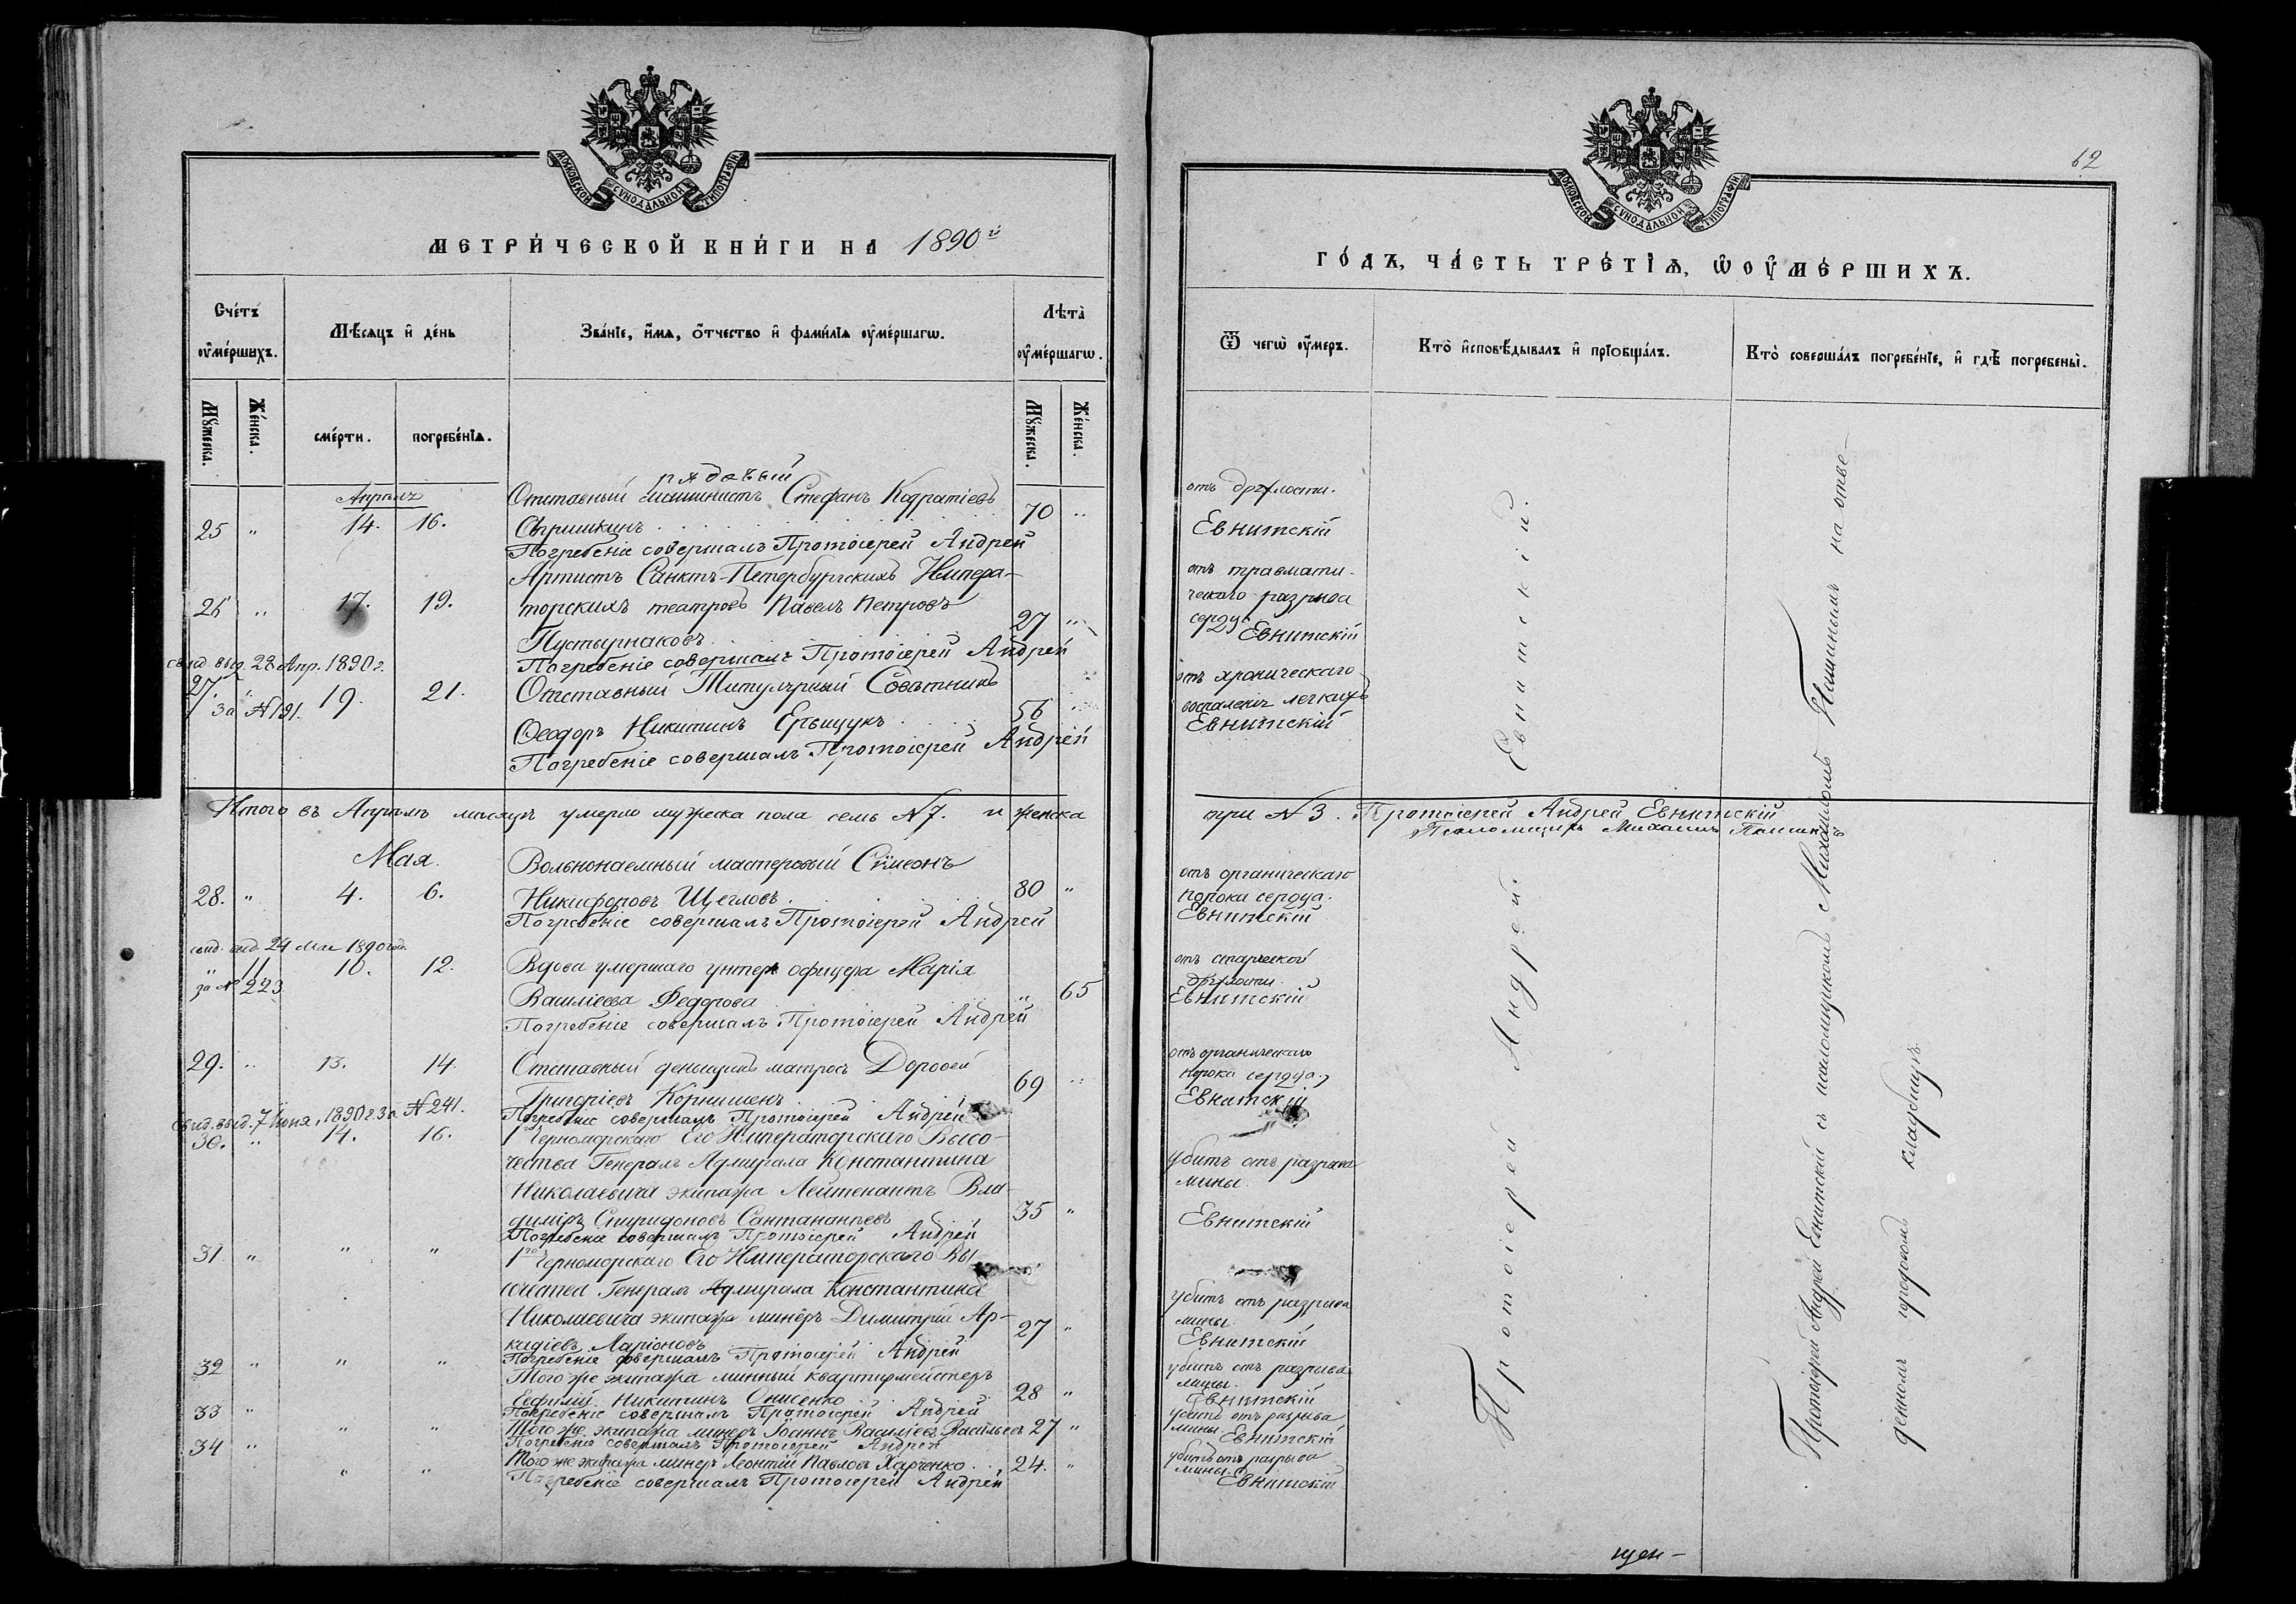 МОСКОВСКОЙ СѴНОДАЛЬНОЙ ТИПОГРАФІИ
МЕТРИЧЕСКОЙ КНИГИ НА 1890й
Счетъ оумершихъ.
Мѣсяцъ и день
Званіе, имя, отчество и фамилія оумершагѡ.
Лѣта оумершагѡ.
Мꙋжеска.
Женска.
смерти.
погребенія.
Мꙋжеска.
Женска.
рядовый
Апрѣль
Отставный машинистъ Стефанъ Кодратіевъ
25 " 14. 16. 70 "
Погребеніе совершалъ Протоіерей Андрей
Артистъ Санктъ-Петербургскихъ Импера-
26 " 17. 19. торскихъ театровъ Павелъ Петровъ 27 "
Пустырнаковъ
Погребеніе совершалъ Протоіерей Андрей
свид. выд. 28 Апр. 1890 г.
27. " 19. 21. Отставный Титулярный Совѣтникъ
за №191. 56 "
Ѳеодоръ Никитинъ Ерыщукъ
Погребеніе совершалъ Протоіерей Андрей
Итого въ Апрѣлѣ мѣсяцѣ умерло мужеска пола семь №7. и женска
Мая.
Вольнонаемный мастеровый Сѵмеонъ
28. " 4. 6. Никифоровъ Щегловъ 80 "
Погребеніе совершалъ Протоіерей Андрей
свид. выд. 24 Мая 1890 год.
" 11 10. 12. Вдова умершаго унтеръ офицера Марія
за № 223
Василіева Федорова " 65
Погребеніе совершалъ Протоіерей Андрей
29. " 13. 14. Отставный деньщикъ матросъ Дороѳей
Григоріевъ Корнишенъ 69 "
свид. выд. 7 Іюня, 1890 г. за №241.
Погребеніе совершалъ Протоіерей Андрей
30. " 14. 16. 1го Черноморскаго Его Императорскаго Высо-
чества Генералъ Адмирала Константина
Николаевича экипажа Лейтенантъ Вла-
диміръ Спиридоновъ 35 "
Погребеніе совершалъ Протоіерей Андрей
31. " " " 1го Черноморскаго Его Императорскаго Вы-
сочества Генералъ Адмирала Константина
Николаевича экипажа минёръ Димитрій Ар-
кадіевъ Ларіоновъ 27 "
Погребеніе совершалъ Протоіерей Андрей
32 " " " Того же экипажа минный квартирмейстеръ
Евфимій Никитинъ Онисенко 28 "
Погребеніе совершалъ Протоіерей Андрей
33 " " " Того же экипажа минеръ Іоаннъ Василіевъ Васильевъ 27 "
Погребеніе совершалъ Протоіерей Андрей
34 " " " Того же экипажа минеръ Леонтій Павловъ Харченко 24. "
Погребеніе совершалъ Протоіерей Андрей
62
МОСКОВСКОЙ СѴНОДАЛЬНОЙ ТИПОГРАФІИ
ГОДЪ, ЧАСТЬ ТРЕТІѦ, Ѡ ОУМЕРШИХЪ.
Ѿ чегѡ оумеръ.
Кто исповѣдывалъ и пріобщалъ.
Кто совершалъ погребеніе, и гдѣ погребены.
отъ дряхлости.
Евнитскій
отъ травмати-
ческаго разрыва
сердца
Евнитскій
отъ хроническаго
воспаленія легкихъ
Евнитскій
три №3. Протоіерей Андрей Евнитскій
Псаломщикъ Михаилъ
отъ органическаго
порока сердца.
Евнитскій
отъ старческой
дряхлости.
Евнитскій
отъ органическаго
порока сердца.
Евнитскій
Убитъ отъ разрыва
мины.
Евнитскій
убитъ отъ разрыва
мины.
Евнитскій
убитъ отъ разрыва
мины.
Евнитскій
убитъ отъ разрыва
мины
Евнитскій
убитъ отъ разрыва
мины.
Евнитскій
Протоіерей Андрей Евнитскій.
Протоіерей Андрей Евнитскій съ псаломщикомъ Михаиломъ на отве-
денномъ городскомъ кладбищѣ.
щен-